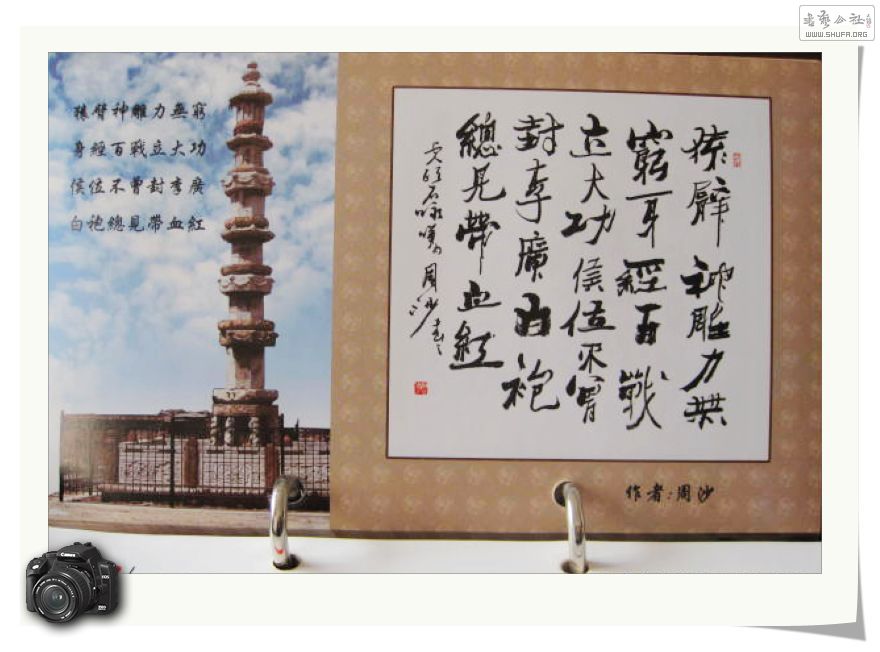 書藝公社
WWW.SHUFA.ORG
猿臂神雕力無窮
身經百戰立大功
侯位不曾封李廣
白袍總見帶血紅
猿臂神雕力無
窮身經百戰
立大功侯位不曾
封李廣白袍
總見帶血紅
周沙書
作者:周沙
Canon
EOS